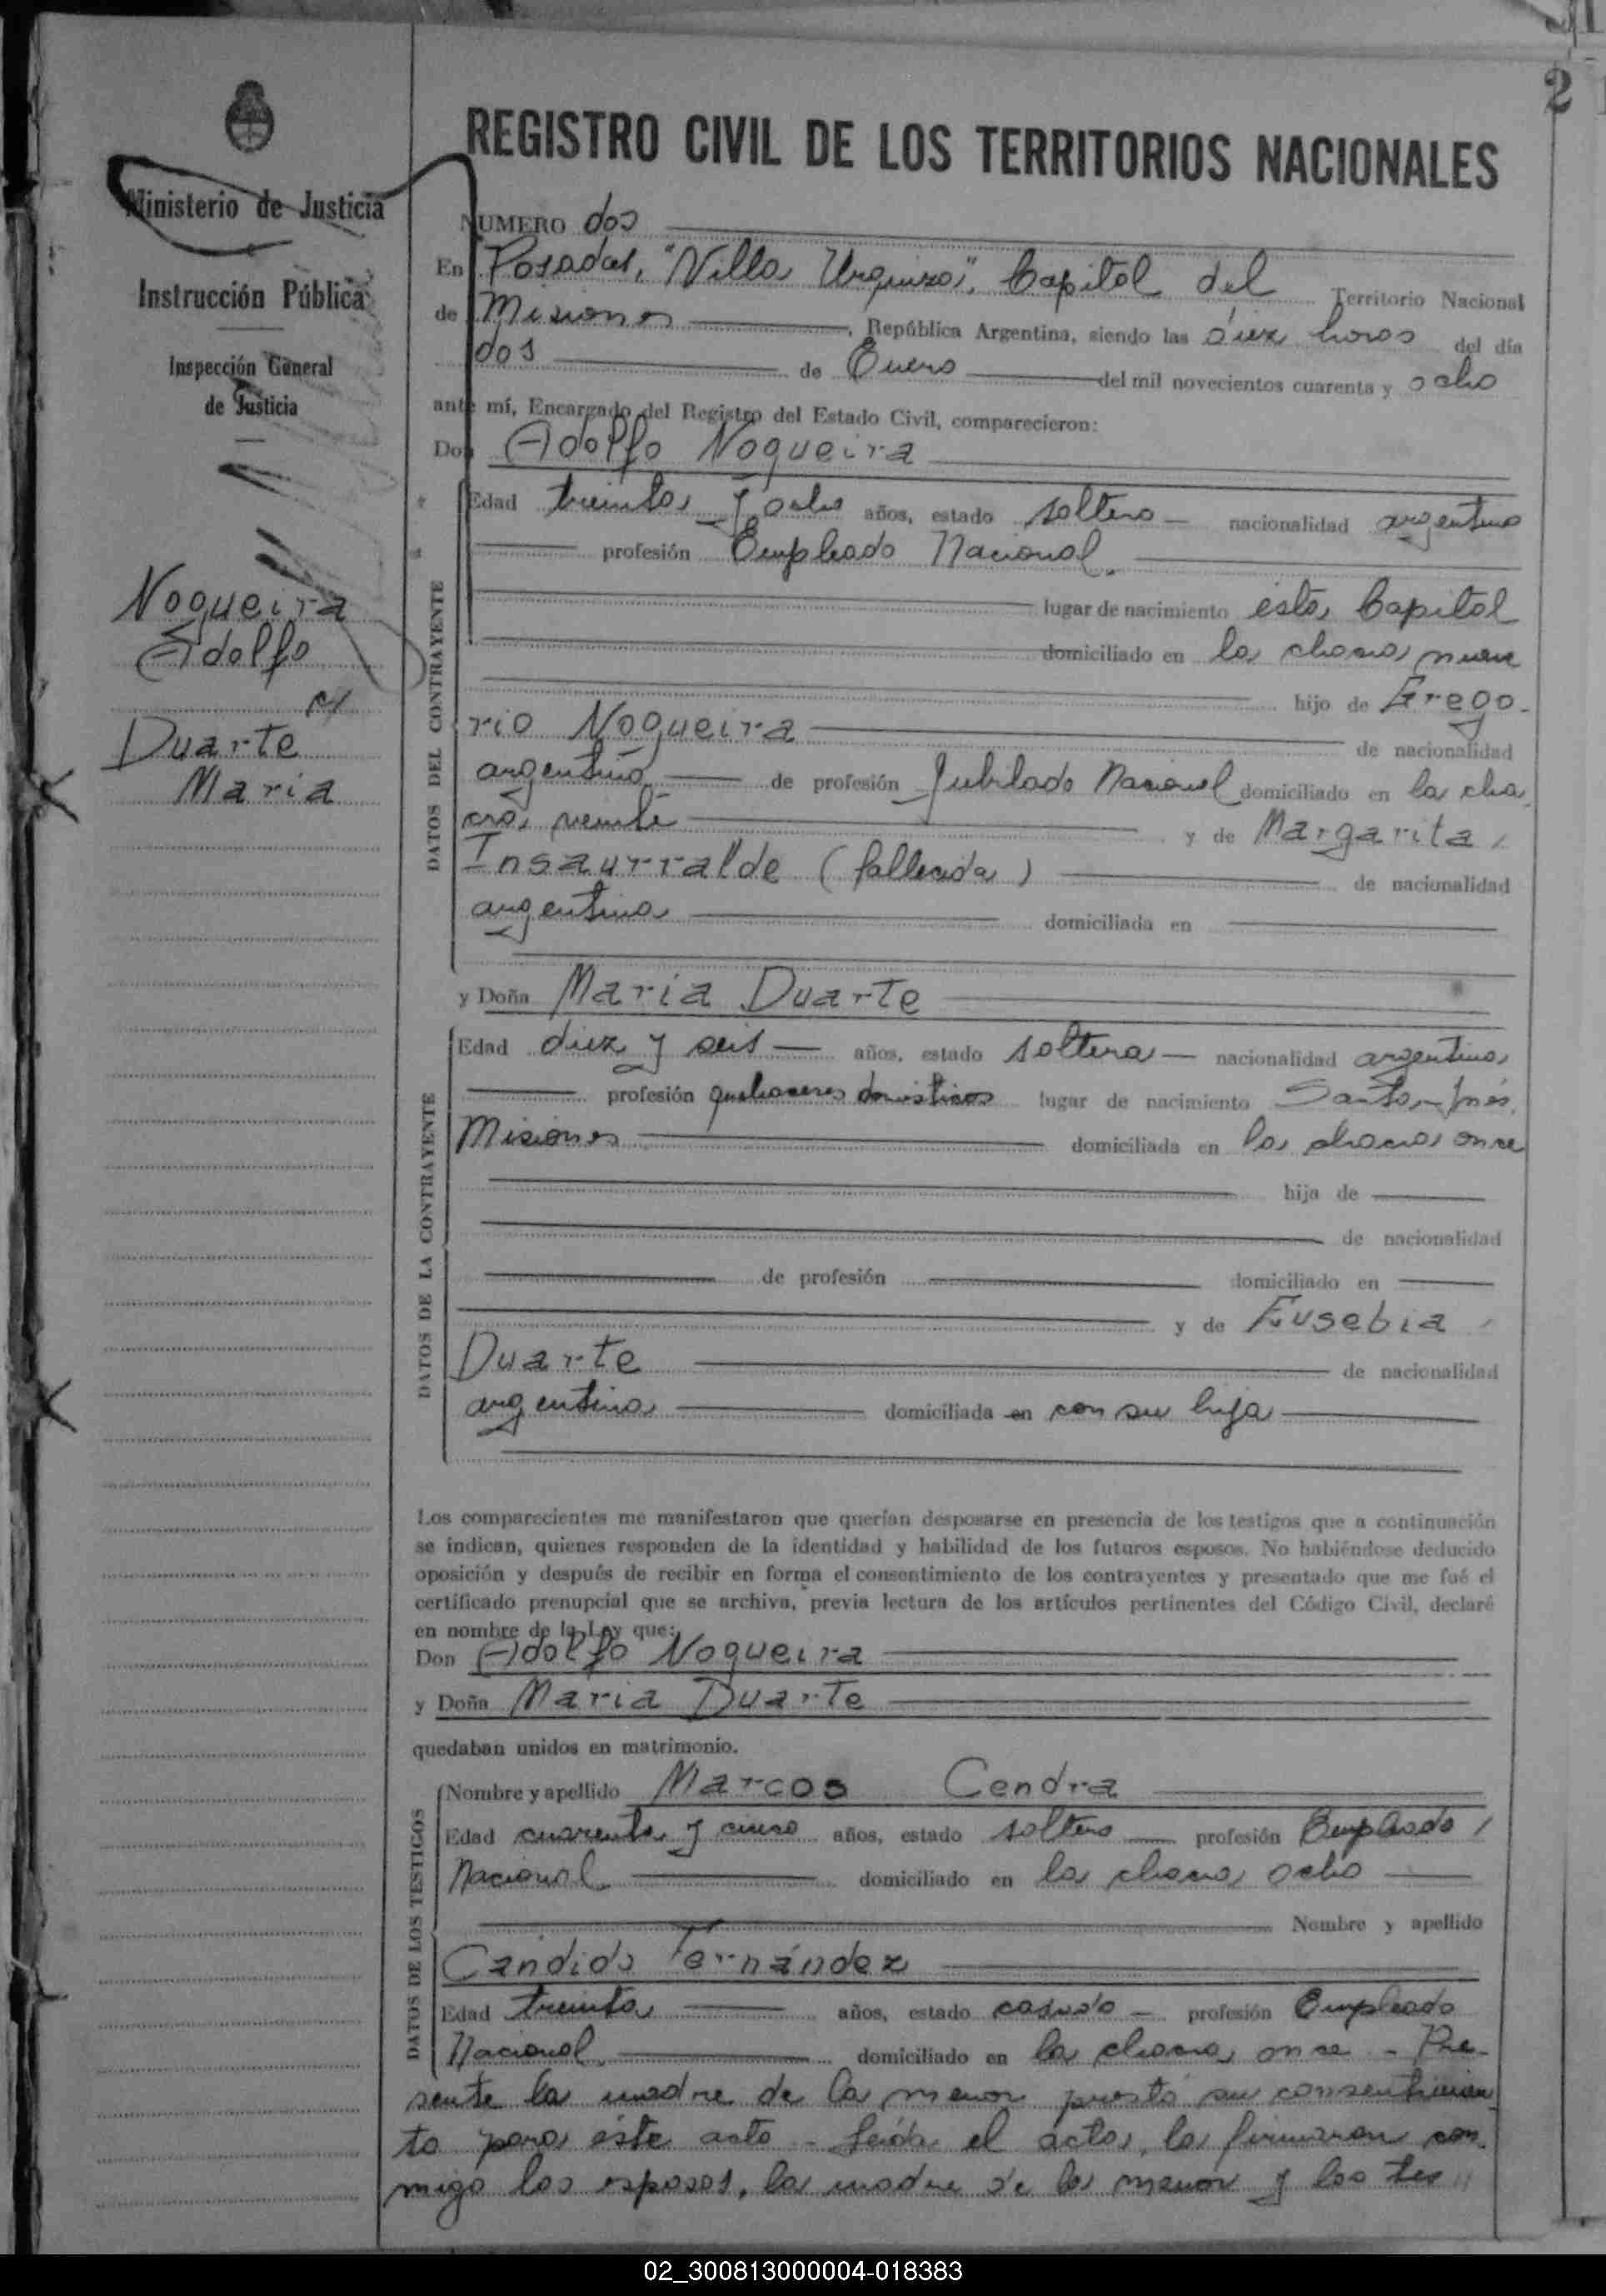 2
Ministerio de Justicia
Instrucción Pública
Inspección General
de Justicia
Nogueira
Adolfo
y
Duarte
Maria
REGISTRO CIVIL DE LOS TERRITORIOS NACIONALES
NUMERO dos
En Posadas, "Villa Urquiza", Capital del Territorio Nacional
de Misiones, República Argentina, siendo las diez horas del día
dos de Enero del mil novecientos cuarenta y ocho
ante mí, Encargado del Registro del Estado Civil, comparecieron:
Don Adolfo Nogueira
DATOS DEL CONTRAYENTE
Edad treinta y ocho años, estado soltero nacionalidad argentino
profesión Empleado Nacional.
lugar de nacimiento esta Capital
domiciliado en la chacra nueve
hijo de Grego-
rio Nogueira de nacionalidad
argentino de profesión Jubilado Nacional domiciliado en la cha
cra veinte y de Margarita
Insaurralde (fallecida) de nacionalidad
argentina domiciliada en
y Doña Maria Duarte
DATOS DE LA CONTRAYENTE
Edad diez y seis años, estado soltera nacionalidad argentina
profesión quehaceres domésticos lugar de nacimiento Santa Inés,
Misiones domiciliada en la chacra once
hija de
de nacionalidad
de profesión domiciliado en
y de Eusebia
Duarte de nacionalidad
argentina domiciliada en con su hija
Los comparecientes me manifestaron que querían desposarse en presencia de los testigos que a continuación
se indican, quienes responden de la identidad y habilidad de los futuros esposos. No habiéndose deducido
oposición y después de recibir en forma el consentimiento de los contrayentes y presentado que me fué el
certificado prenupcial que se archiva, previa lectura de los artículos pertinentes del Código Civil, declaré
en nombre de la Ley que:
Don Adolfo Nogueira
y Doña Maria Duarte
quedaban unidos en matrimonio.
DATOS DE LOS TESTIGOS
Nombre y apellido Marcos Cendra
Edad cuarenta y cinco años, estado soltero profesión Empleado
Nacional domiciliado en la chacra ocho
Nombre y apellido
Cándido Fernández
Edad treinta años, estado casado profesión Empleado
Nacional domiciliado en la chacra once - Pre-
sente la madre de la menor prestó su consentimien
to para éste acto - Leída el acta, la firmaron con-
migo los esposos, la madre de la menor y los tes
02_300813000004-018383